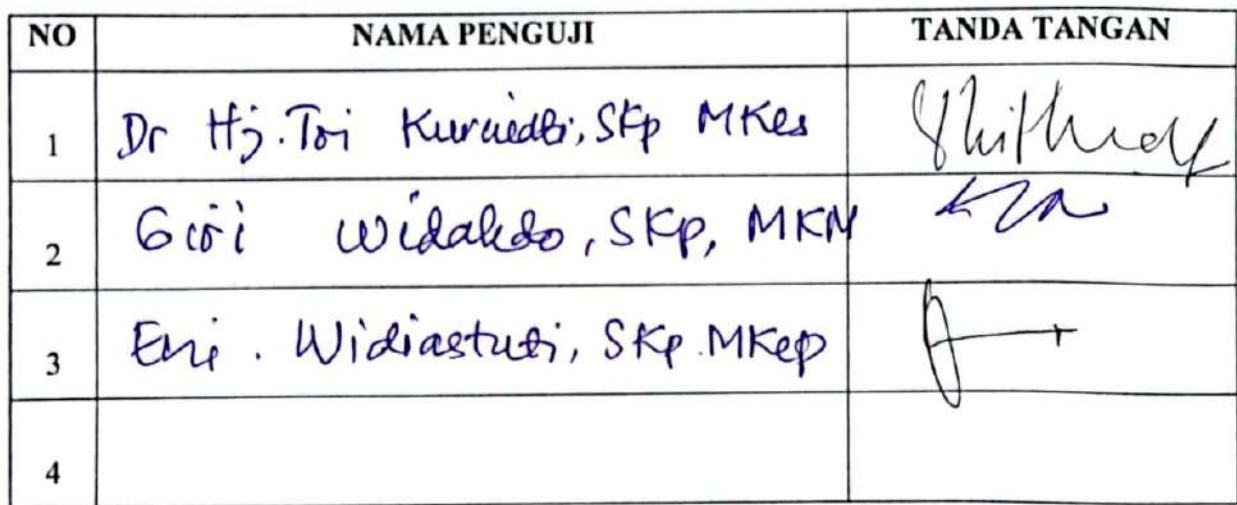 NO NAMA PENGUJI TANDA TANGAN
1 Dr Hj. Tri Kurniati, SKp MKes
2 Giri Widakdo, SKp, MKM
3 Eni . Widiastuti, SKp. MKep
4